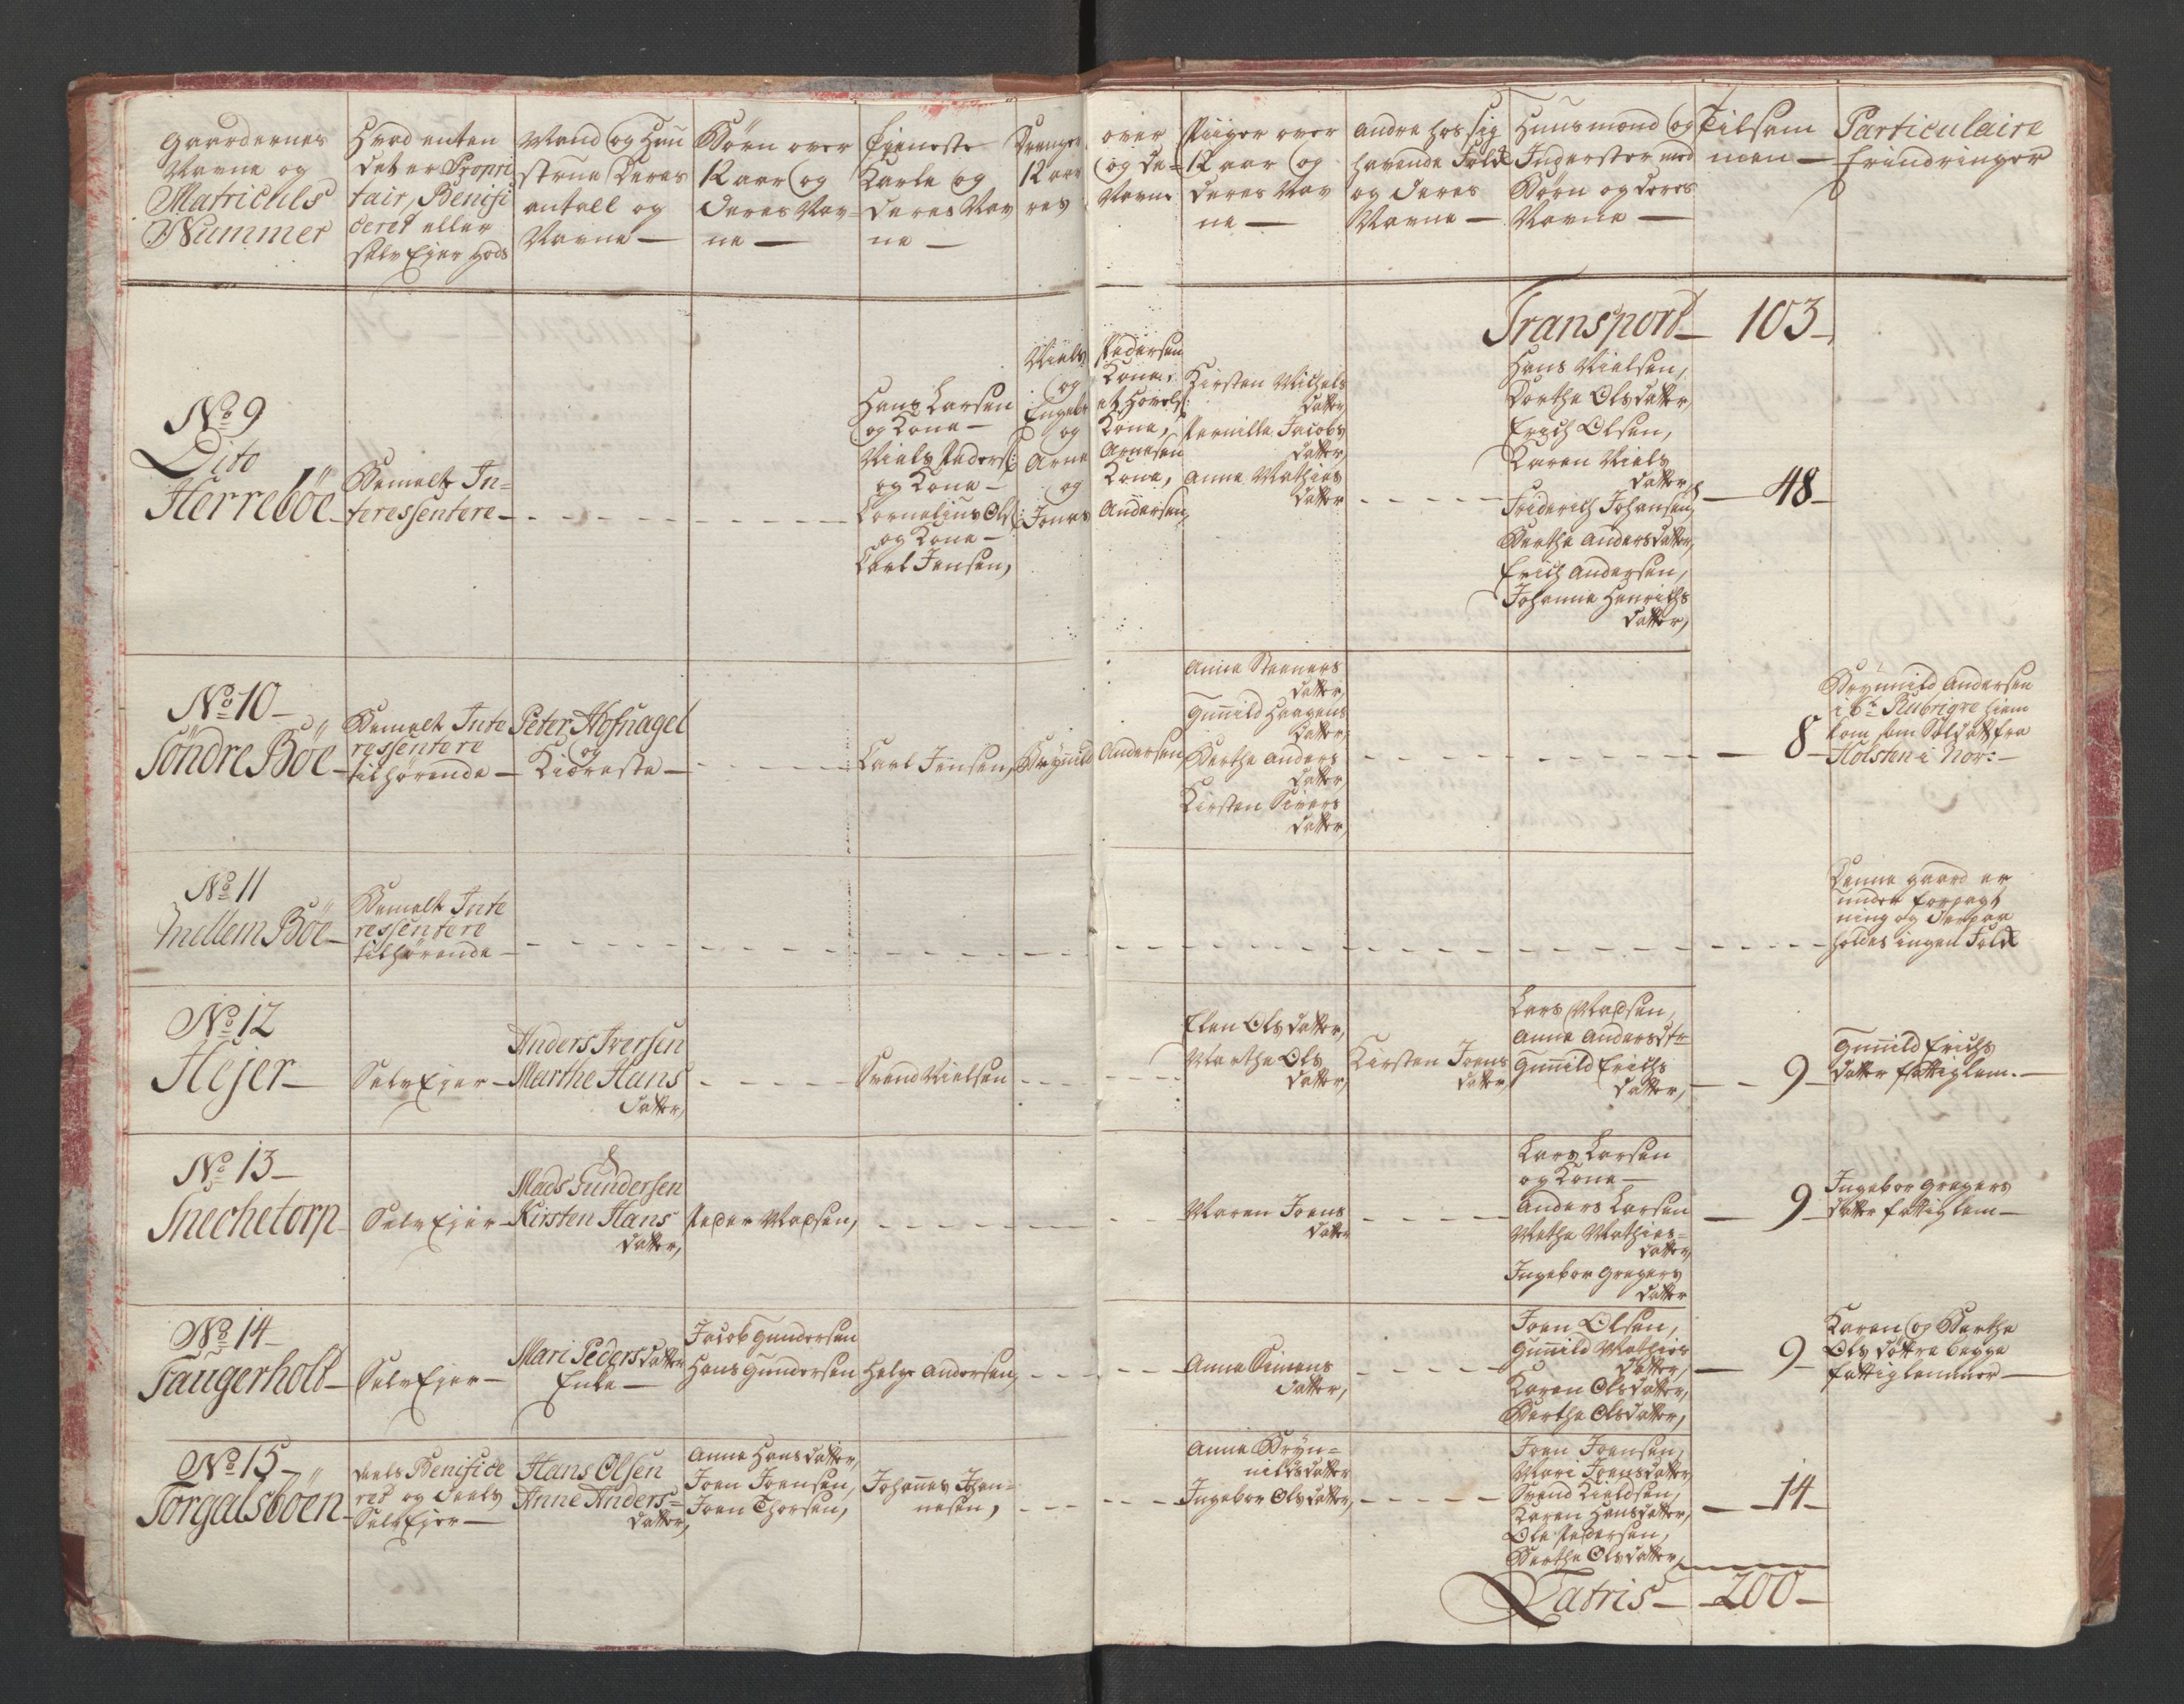 Gaardernes
Navne og
Matriculs
Nummer
Hvad enten
det er Propri
tair, Benifi
ceret eller
selv Ejer gods
Mand og Huu
strue Deres
antall og
Navne —
Børn over
12 aar og
deres Nav=
ne —
Tieneste
Karle og
deres Nav
ne —
Drenge over
12 aar og de=
res Navne
Piiger over
12 aar og
deres Nav
ne —
Andre hos sig
havende Folk
og deres
Navne —
Huusmænd og
Inderster med
Børn og deres
Navne —
Tilsam
men —
Particulaire
Erindringer
Transport — 103 —
No 9
Dito
Herreböe —
Bemelte In=
teressentere —
Hans Larsen
og Kone —
Niels Peders:
og Kone —
Cornelius Ols:
og Kone —
Carl Jensen,
Niels Pedersen
og Kone,
Engebret Hovels:
og Kone,
Arne Arnesen
og Kone,
Jonas Andersen,
Kirsten Michels
datter,
Pernille Jacobs
datter,
Anne Mathias
datter
Hans Nielsen,
Dorthe Olsdatter,
Erich Olsen,
Karen Niels
datter,
Friderich Johansen,
Berthe Andersdatter,
Erich Andersen,
Johanne Henrichs
datter,
— 48 —
No 10 —
Söndre Böe —
Bemelte Inte
ressentere
tilhørende —
Peter Hofnagel
og
Kiæreste —
Carl Jensen,
Brynnild Andersen,
Anne Steeners
datter,
Gunnild Haagens
datter,
Berthe Anders
datter,
Kirsten Sivers
datter,
— 8 —
Brynnild Andersen
i 6te Rubriqve hiem
kom som Soldatt fra
Holsten i Nov: —
No 11
Mellem Böe —
Bemelte Inte
ressentere
tilhørende —
Denne gaard er
under forpagt
ning og derpaa
holdes ingen Folk
No 12
Hejer —
Selv Ejer —
Anders Iversen
Marthe Hans
datter,
Svend Nielsen
Elen Olsdatter,
Marthe Ols
datter,
Kirsten Joens
datter,
Lars Madsen,
Anne Andersdtr
Gunnild Erichs
datter,
— 9 —
Gunnild Erichs
datter fattiglem. —
No 13 —
Snechetorp —
Selv Ejer —
Mads Gundersen
Kirsten Hans
datter,
Peder Madsen,
Maren Joens
datter
Lars Larsen
og Kone —
Anders Larsen
Methe Mathias=
datter,
Ingebor Gregers
datter
— 9 —
Ingebor Gregers
datter fattiglem —
No 14 —
Taugerholt —
Selv Ejer —
Mari Pedersdatter
Enke —
Jacob Gundersen
Hans Gundersen
Helge Andersen,
Anne Simens
datter,
Joen Olsen,
Gunnild Mathias
datter,
Karen Olsdatter,
Berthe Olsdatter,
— 9 —
Karen og Berthe
Ols döttre begge
fattiglemmer —
No 15 —
Torgalsböen —
deels Benifice
ret og deels
Selv Ejer —
Hans Olsen
Anne Anders=
datter,
Anne Hansdatter,
Joen Joensen,
Joen Thorsen,
Johannes Johan=
nesen,
Anne Bryn=
nildsdatter
Ingebor Olsdatter,
Joen Joensen,
Mari Joensdatter,
Svend Kieldsen,
Karen Hansdatter,
Ole Pedersen,
Berthe Olsdatter,
— 14 —
Latris — 200 —